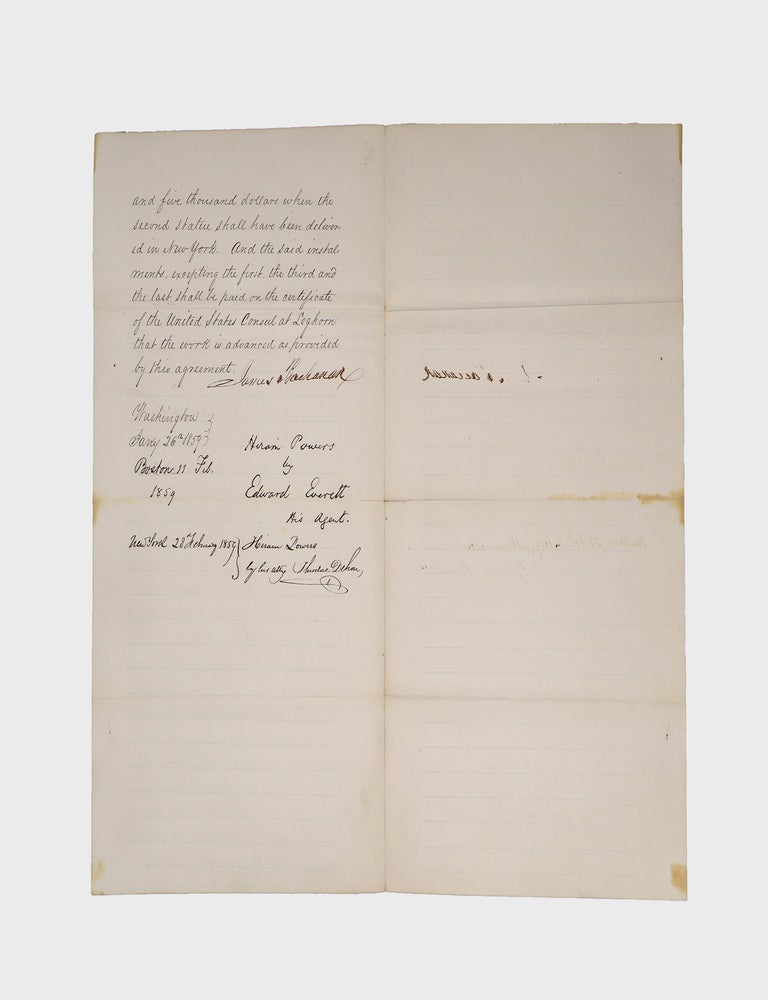 and five thousand dollars when the
second statue shall have been deliver
ed in New York. And the said instal-
ments, excepting the first, the third and
the last shall be paid on the certificate
of the United States Consul at Leghorn
that the work is advanced as provided
by this agreement.
James Buchanan
Washington
Jany 26th 1859
Hiram Powers
Boston 11 Feb.
by
1859
Edward Everett
His Agent.
New York 28th Februry 1859
Hiram Powers
by his atty Theodore Dehon,